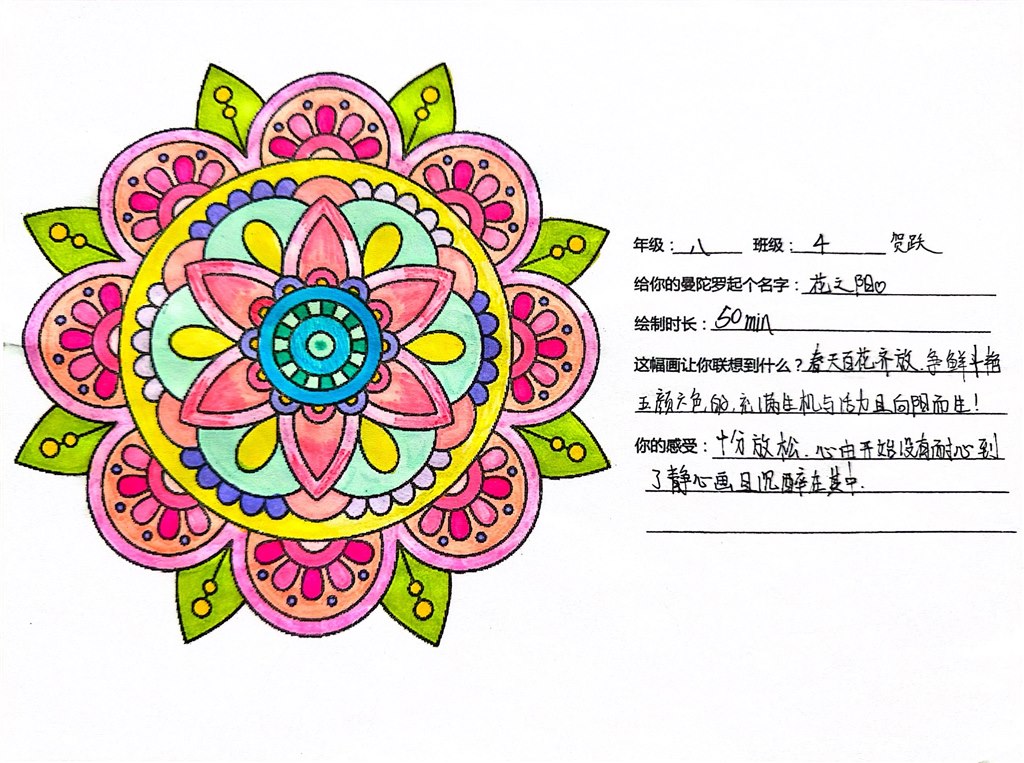 年级：八 班级：4 贺跃
给你的曼陀罗起个名字：花之阳♡
绘制时长：50min
这幅画让你联想到什么？春天百花齐放、争鲜斗艳
五颜六色的，充满生机与活力且向阳而生！
你的感受：十分放松、心由开始没有耐心到
了静心画且沉醉在其中.